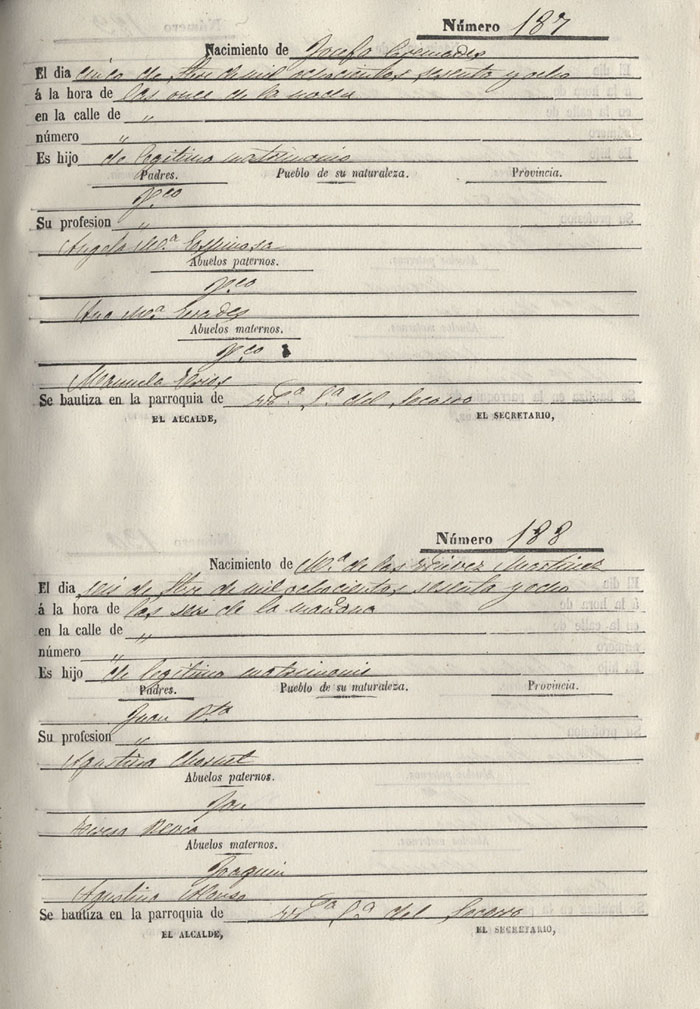 Número 187
Nacimiento de Josefa Gremades
El dia cinco de Stre de mil ochocientos sesenta y ocho
á la hora de las once de la noche
en la calle de "
número "
Es hijo de legitimo matrimonio
Padres. Pueblo de su naturaleza. Provincia.
Fco
Su profesion "
Angela Mª Espinosa
Abuelos paternos.
Fco
Ana Mª
Abuelos maternos.
Fco
Manuela
Se bautiza en la parroquia de Ntª Sª del Socorro
EL ALCALDE, EL SECRETARIO,
Número 188
Nacimiento de Mª de las Nieves Martinez
El dia seis de Stre de mil ochocientos sesenta y ocho
á la hora de las seis de la mañana
en la calle de "
número "
Es hijo de legitimo matrimonio
Padres. Pueblo de su naturaleza. Provincia.
Juan Bta
Su profesion "
Agustina
Abuelos paternos.
José
Teresa
Abuelos maternos.
Joaquin
Agustina Alonso
Se bautiza en la parroquia de Ntª Sª del Socorro
EL ALCALDE, EL SECRETARIO,